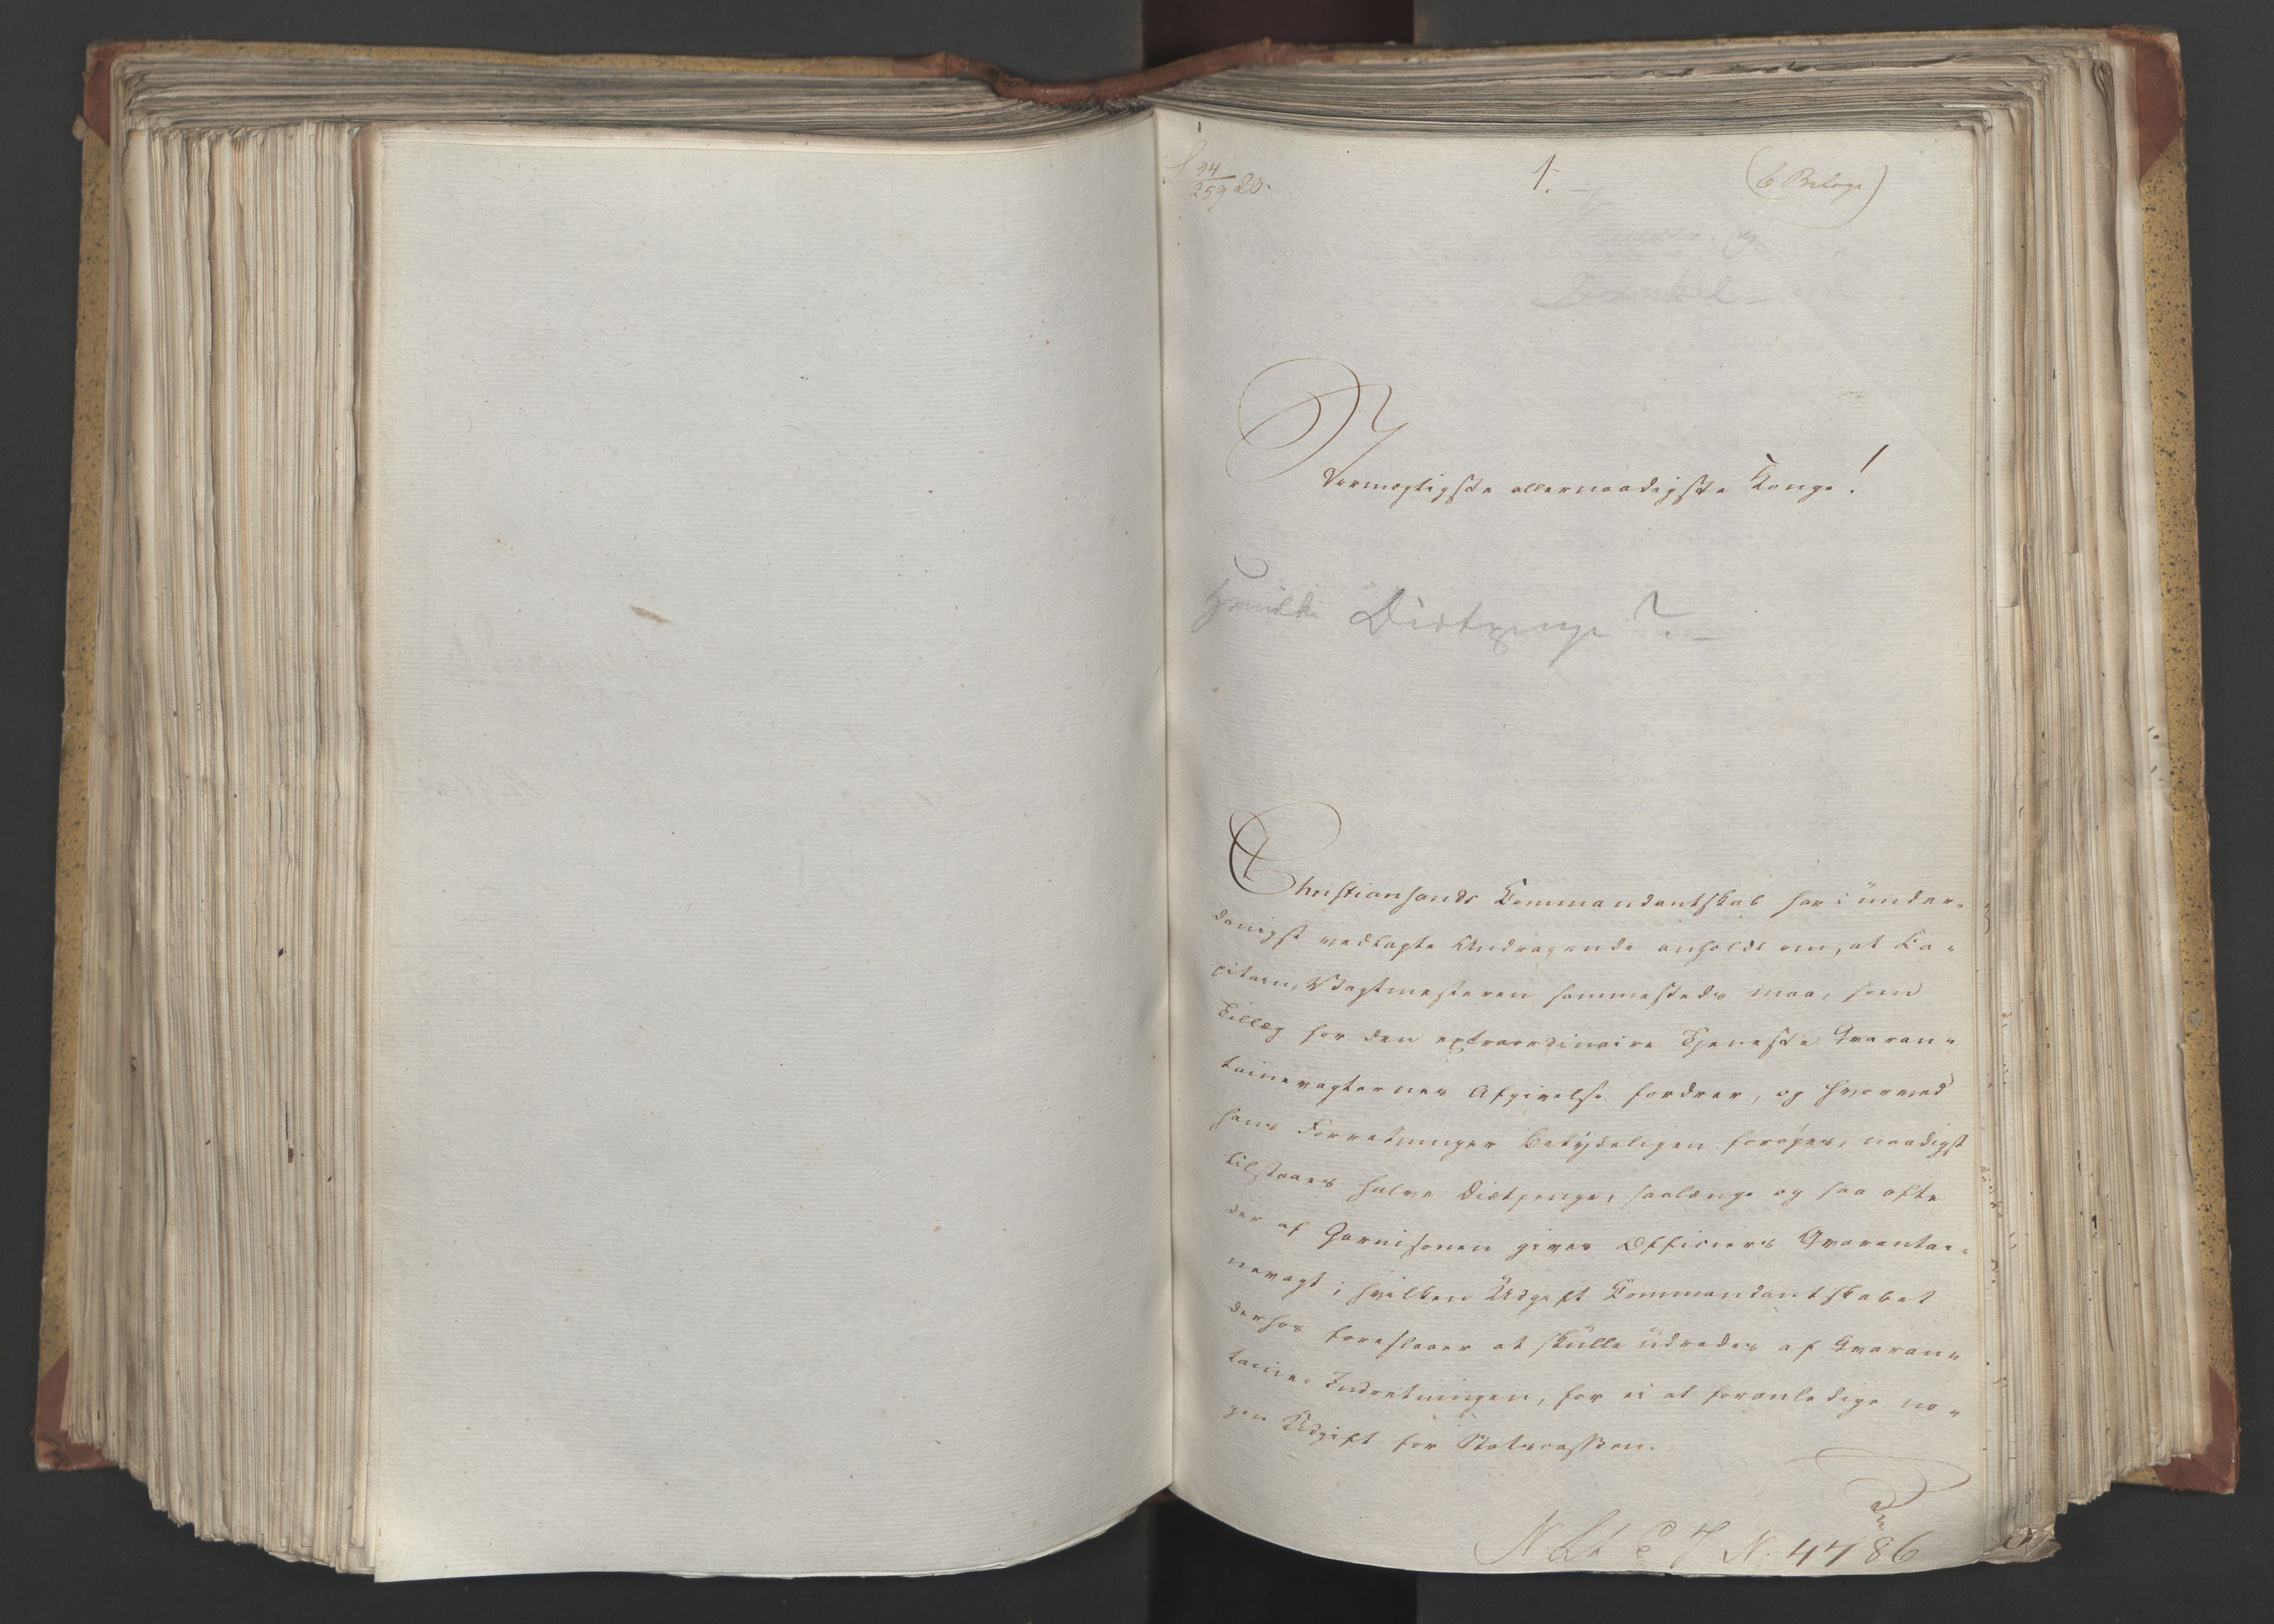 94
257 20.
1.
(6 Bilage)
Stormægtigste allernaadigste Konge!
Hvilke Diætpenge?
Christiansands Kommandantskab har i under-
danigst vedlagte Andragende anholdt om, at Ka-
pitain, Vagtmesteren sammesteds maa, som
Tillæg for den extraordinaire Tjeneste Qvaran-
tainevagternes Afgivelse fordrer, og hvorved
hans Forretninger betydeligen forøges, naadigst
tilstaaes halve Diætpenge, saalænge og saa ofte
der af Garnisonen gives Officiers Qvarantai-
nevagt; hvilken Udgift Kommandantskabet
derhos foreslaaer at skulle udredes af Qvaran-
taine-Indretningen, for ei at foranledige no-
gen Udgift for Statscassen.
N. 4786